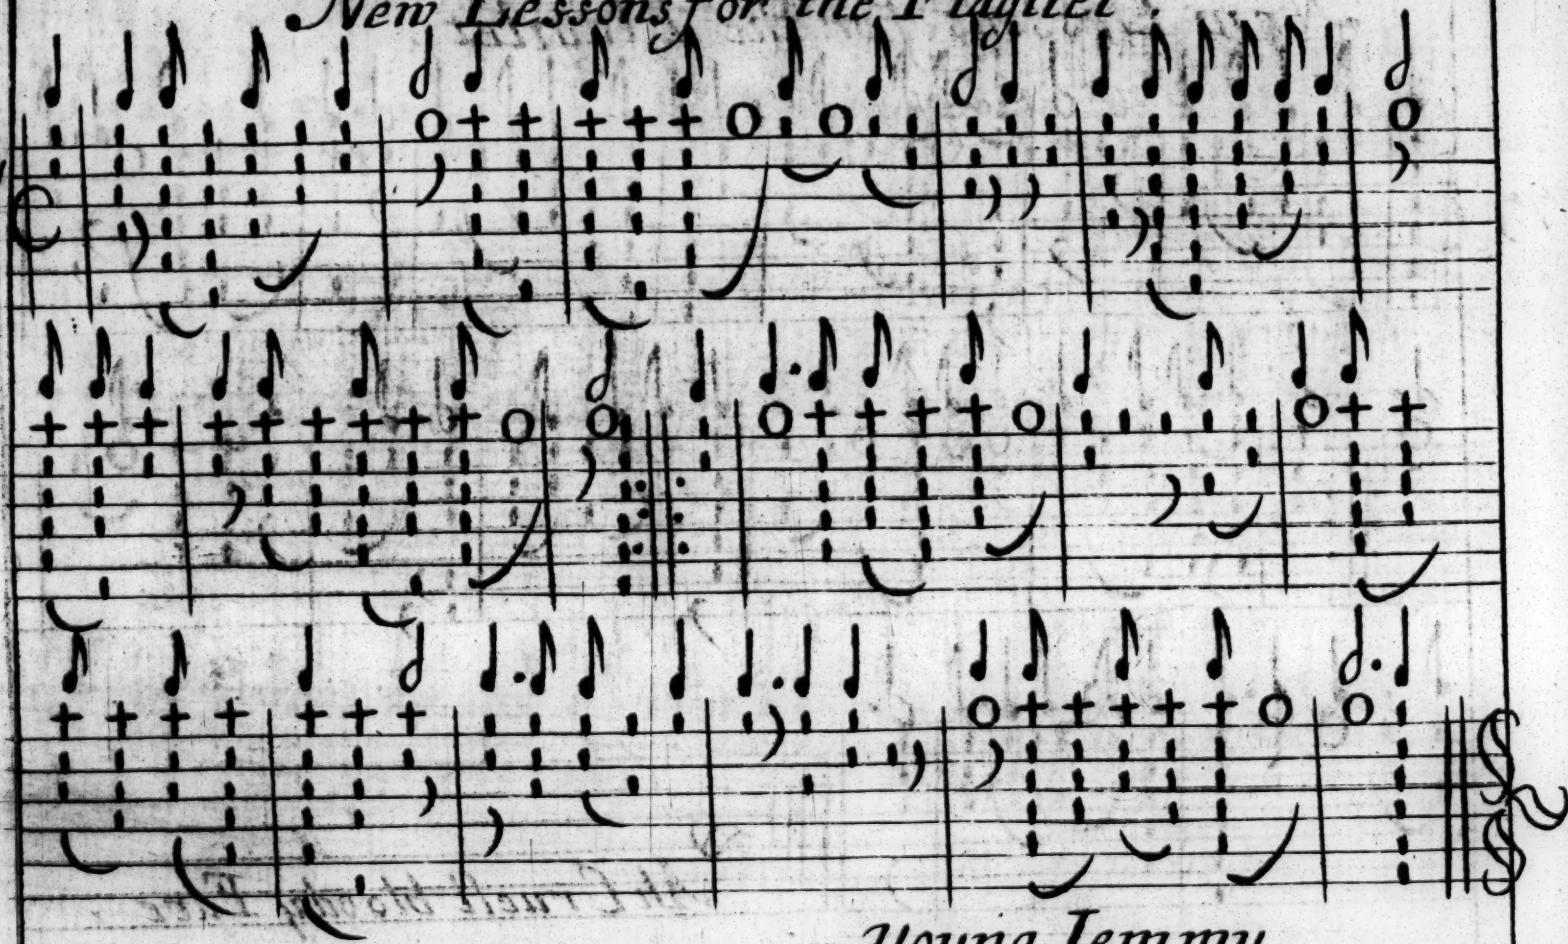 New Lessons for the Flagilet.
Young Jemmy